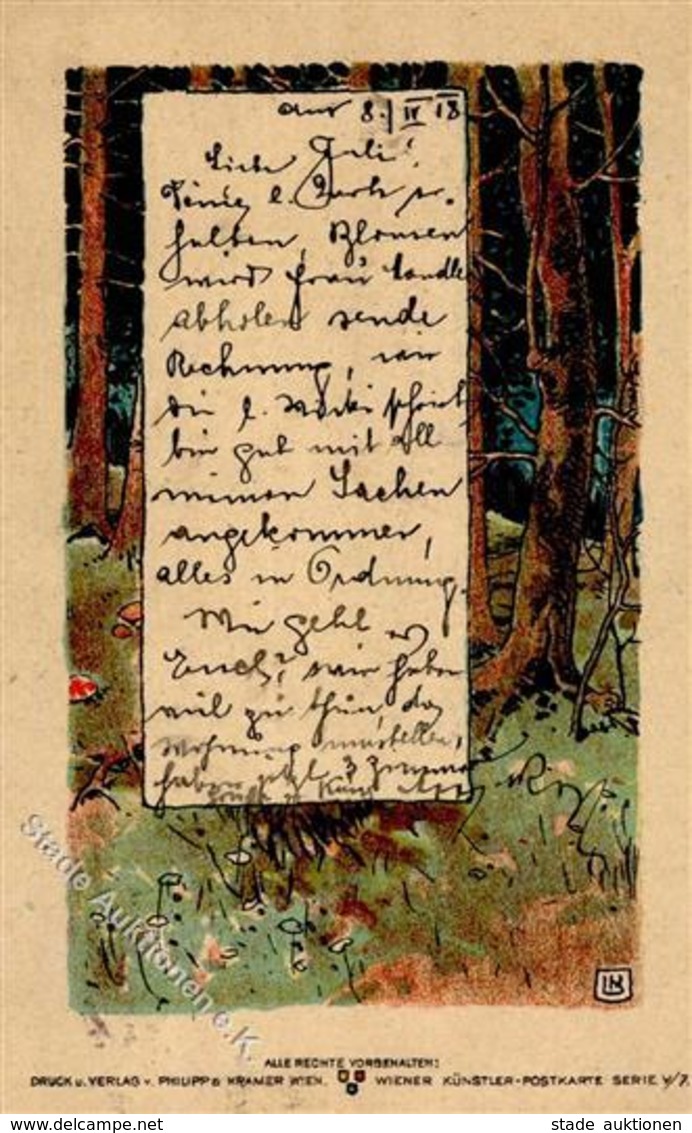 8. IV 18
Liebe Juli!
halten, Blumen
wird Frau
abholen sende
Rechnung, wie
die l. Micki schrieb
bin gut mit all
meinen Sachen
angekommen,
alles in Ordnung.
Wie geht es
Euch? wir haben
viel zu thun, das
Wohnung umstellen,
haben jetzt 3 Zimmer
Stade Auktionen e.K.
ALLE RECHTE VORBEHALTEN:
DRUCK U. VERLAG V. PHILIPP & KRAMER WIEN. WIENER KÜNSTLER-POSTKARTE SERIE V/7.
delcampe.net stade auktionen